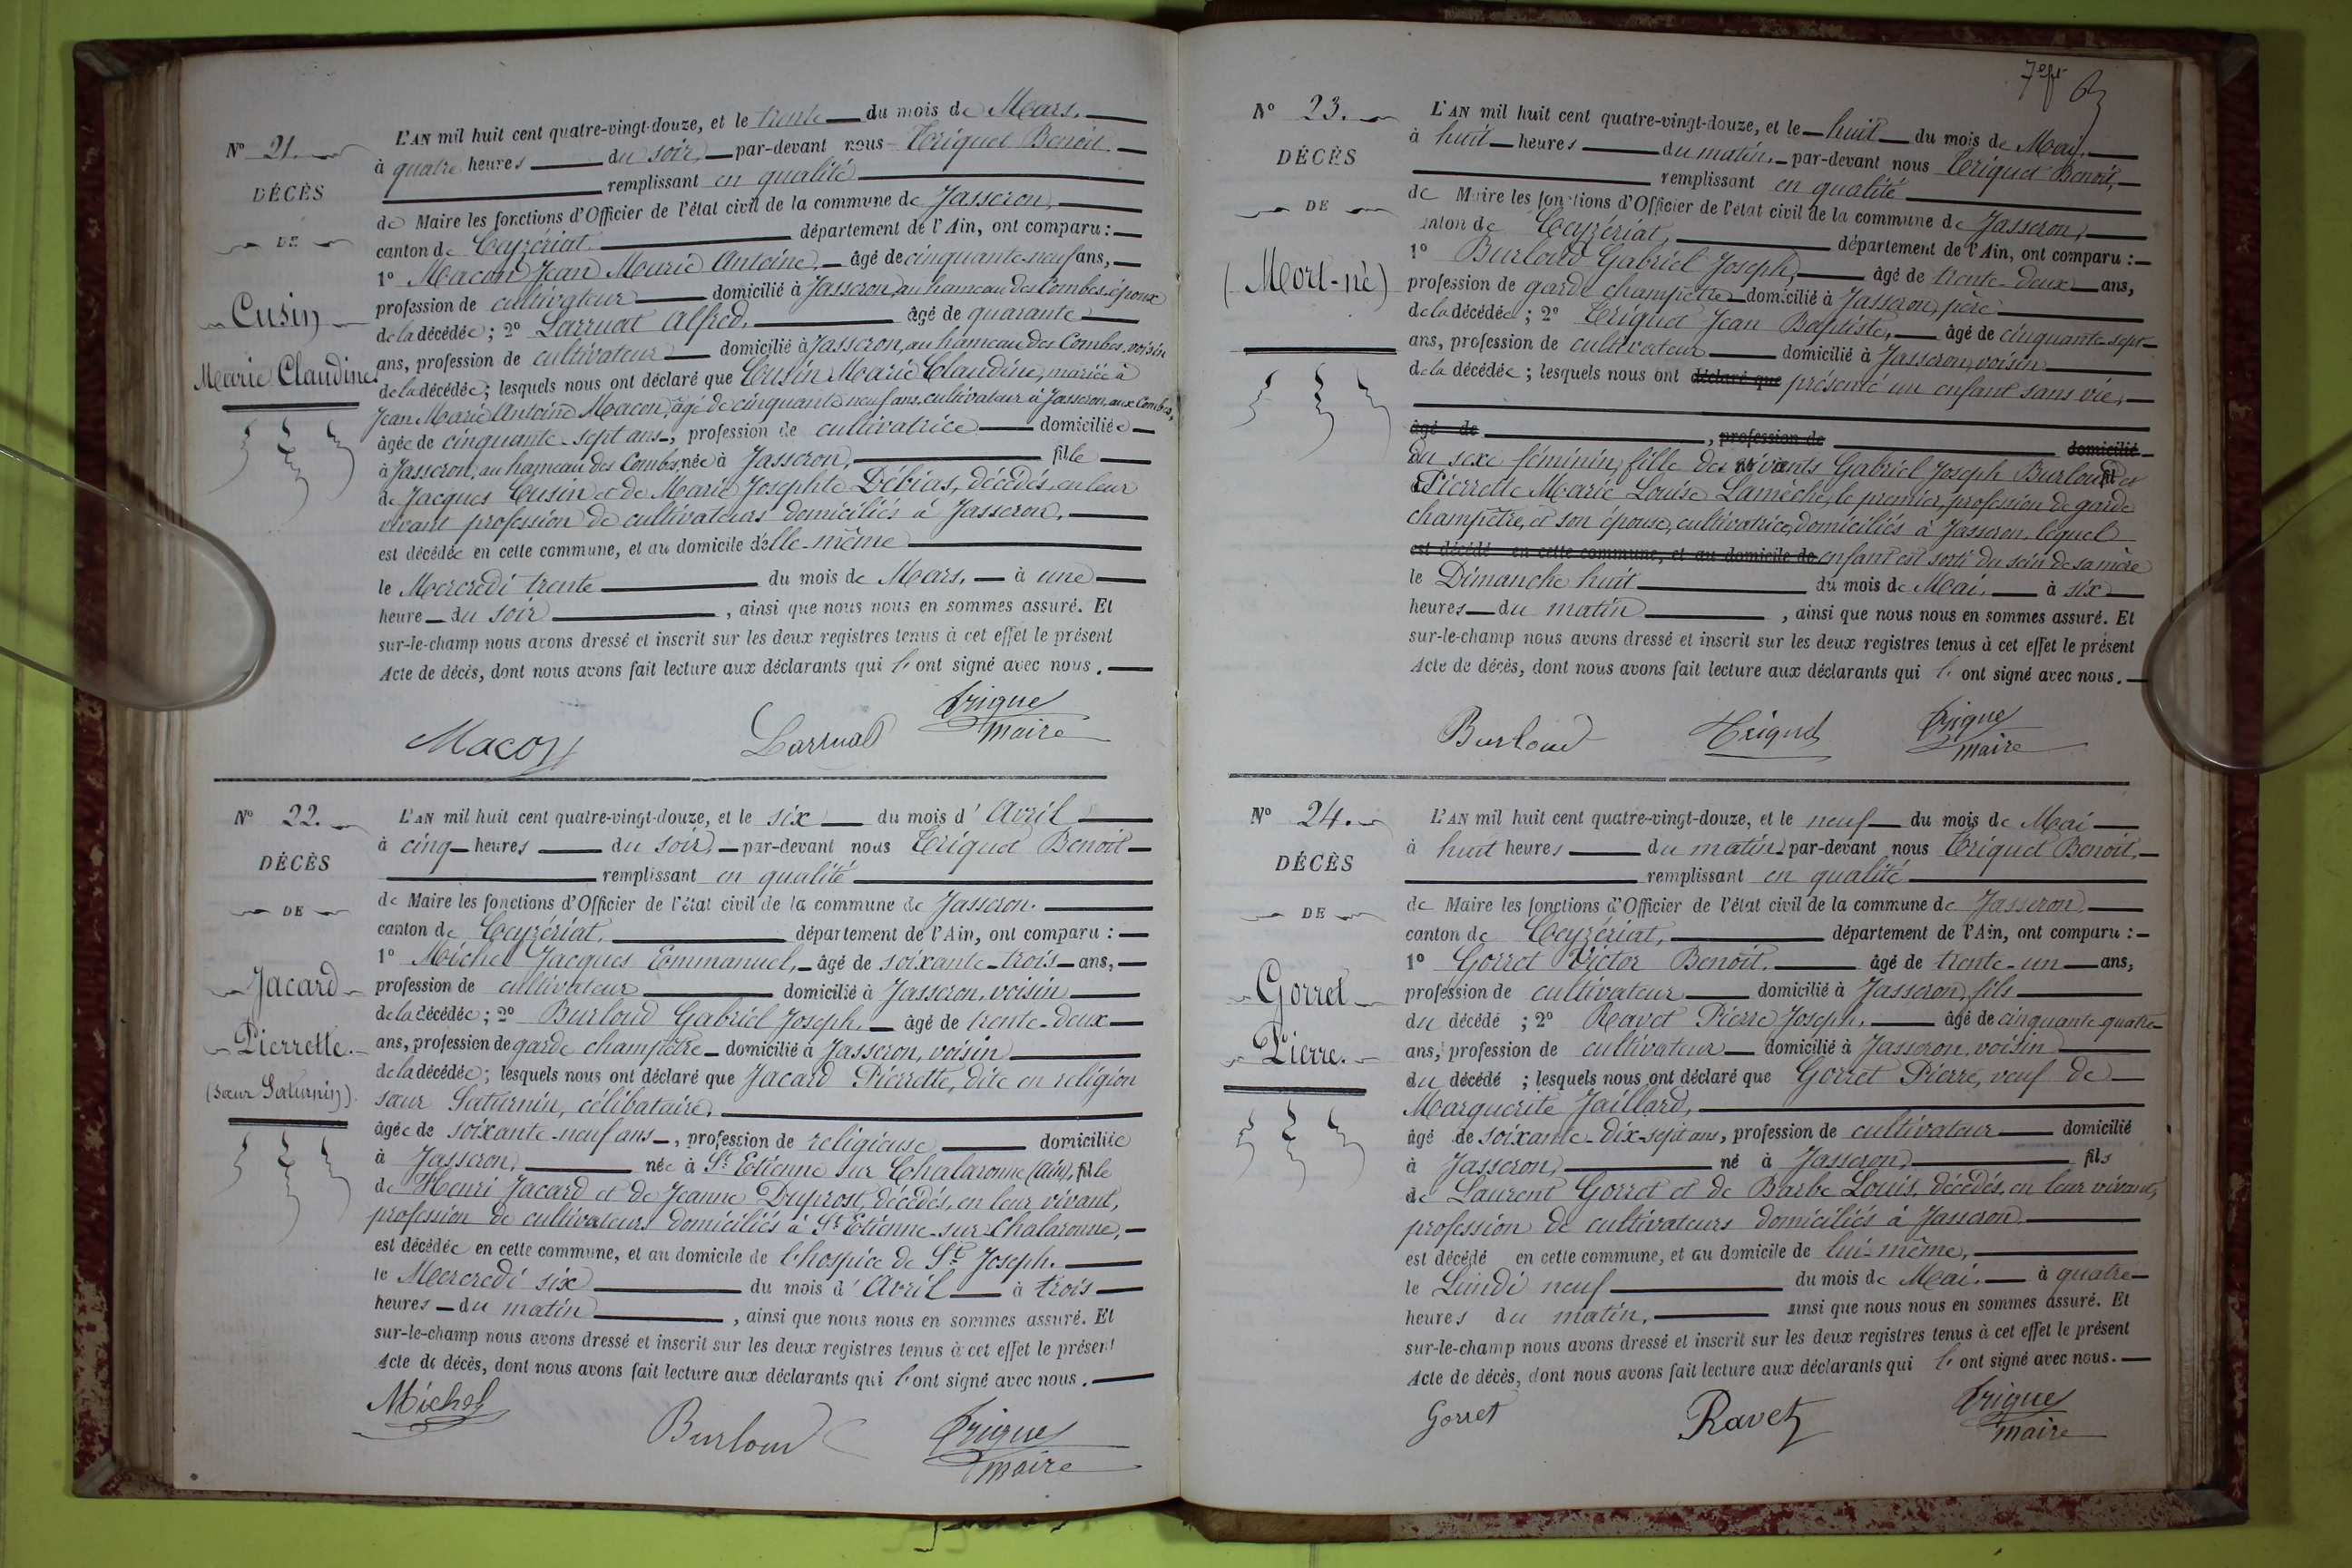 N° 21.
DÉCÈS
DE
Cusin
Marie Claudine
L'AN mil huit cent quatre-vingt-douze, et le trente du mois de Mars.
à quatre heures du soir, par-devant nous Triquet Benoit
remplissant en qualité
de Maire les fonctions d'Officier de l'état civil de la commune de Jasseron,
canton de Ceyzériat. département de l'Ain, ont comparu :
1° Macon Jean Marie Antoine, âgé de cinquante neuf ans,
profession de cultivateur domicilié à Jasseron, au hameau des Combes, époux
de la décédée ; 2° Larruat Alfred, âgé de quarante
ans, profession de cultivateur domicilié à Jasseron, au hameau des Combes, voisin
de la décédée ; lesquels nous ont déclaré que Cusin Marie Claudine, mariée à
Jean Marie Antoine Macon, âgé de cinquante neuf ans, cultivateur à Jasseron, aux Combes,
âgée de cinquante-sept ans, profession de cultivatrice domiciliée
à Jasseron, au hameau des Combes, née à Jasseron, fille
de Jacques Cusin et de Marie Josephte Débias, décédés, en leur
vivant profession de cultivateurs domiciliés à Jasseron,
est décédée en cette commune, et au domicile d'elle-même
le Mercredi trente du mois de Mars, à une
heure du soir , ainsi que nous nous en sommes assuré. Et
sur-le-champ nous avons dressé et inscrit sur les deux registres tenus à cet effet le présent
Acte de décès, dont nous avons fait lecture aux déclarants qui l'ont signé avec nous.
Macon Larruat Trique
maire
N° 22.
DÉCÈS
DE
Jacard
Pierrette.
(Sœur Saturnin).
L'AN mil huit cent quatre-vingt-douze, et le six du mois d'Avril
à cinq heures du soir, par-devant nous Triquet Benoit
remplissant en qualité
de Maire les fonctions d'Officier de l'état civil de la commune de Jasseron.
canton de Ceyzériat, département de l'Ain, ont comparu :
1° Michel Jacques Emmanuel, âgé de soixante-trois ans,
profession de cultivateur domicilié à Jasseron, voisin
de la décédée ; 2° Burloud Gabriel Joseph, âgé de trente-deux
ans, profession de garde champêtre domicilié à Jasseron, voisin
de la décédée ; lesquels nous ont déclaré que Jacard Pierrette, dite en religion
sœur Saturnin, célibataire,
âgée de soixante-neuf ans , profession de religieuse domiciliée
à Jasseron, née à St Etienne sur Chalaronne (Ain), fille
de Henri Jacard et de Jeanne Duprost, décédés, en leur vivant,
profession de cultivateurs domiciliés à St Etienne-sur-Chalaronne,
est décédée en cette commune, et au domicile de l'hospice de St Joseph.
le Mercredi six du mois d'Avril à trois
heures du matin , ainsi que nous nous en sommes assuré. Et
sur-le-champ nous avons dressé et inscrit sur les deux registres tenus à cet effet le présent
Acte de décès, dont nous avons fait lecture aux déclarants qui l'ont signé avec nous.
Michel Burloud Trique
maire
N° 23.
DÉCÈS
DE
(Mort-né)
L'AN mil huit cent quatre-vingt-douze, et le huit du mois de Mai,
à huit heures du matin, par-devant nous Triquet Benoit,
remplissant en qualité
de Maire les fonctions d'Officier de l'état civil de la commune de Jasseron,
canton de Ceyzériat, département de l'Ain, ont comparu :
1° Burloud Gabriel Joseph, âgé de trente-deux ans,
profession de garde champêtre domicilié à Jasseron, père
de la décédée ; 2° Triquet Jean Baptiste, âgé de cinquante-sept
ans, profession de cultivateur domicilié à Jasseron, voisin
de la décédée ; lesquels nous ont déclaré que présenté un enfant sans vie,
âgé de , profession de domicilié
du sexe féminin, fille des vivants Gabriel Joseph Burloud et
Pierrette Marie Louise Lamèche, le premier, profession de garde
champêtre, et son épouse, cultivatrice, domiciliés à Jasseron, lequel
est décédé en cette commune, et au domicile de enfant est sorti du sein de sa mère
le Dimanche huit du mois de Mai, à six
heures du matin , ainsi que nous nous en sommes assuré. Et
sur-le-champ nous avons dressé et inscrit sur les deux registres tenus à cet effet le présent
Acte de décès, dont nous avons fait lecture aux déclarants qui l'ont signé avec nous.
Burloud Triquet Trique
maire
N° 24.
DÉCÈS
DE
Gorret
Pierre.
L'AN mil huit cent quatre-vingt-douze, et le neuf du mois de Mai
à huit heures du matin, par-devant nous Triquet Benoit,
remplissant en qualité
de Maire les fonctions d'Officier de l'état civil de la commune de Jasseron,
canton de Ceyzériat, département de l'Ain, ont comparu :
1° Gorret Victor Benoit, âgé de trente-un ans,
profession de cultivateur domicilié à Jasseron, fils
du décédé ; 2° Ravet Pierre Joseph, âgé de cinquante quatre
ans, profession de cultivateur domicilié à Jasseron, voisin
du décédé ; lesquels nous ont déclaré que Gorret Pierre, veuf de
Marguerite Jaillard,
âgé de soixante-dix-sept ans, profession de cultivateur domicilié
à Jasseron, né à Jasseron, fils
de Laurent Gorret et de Barbe Louis, décédés, en leur vivant,
profession de cultivateurs domiciliés à Jasseron
est décédé en cette commune, et au domicile de lui-même,
le Lundi neuf du mois de Mai, à quatre
heures du matin, ainsi que nous nous en sommes assuré. Et
sur-le-champ nous avons dressé et inscrit sur les deux registres tenus à cet effet le présent
Acte de décès, dont nous avons fait lecture aux déclarants qui l'ont signé avec nous.
Gorret Ravet Trique
maire